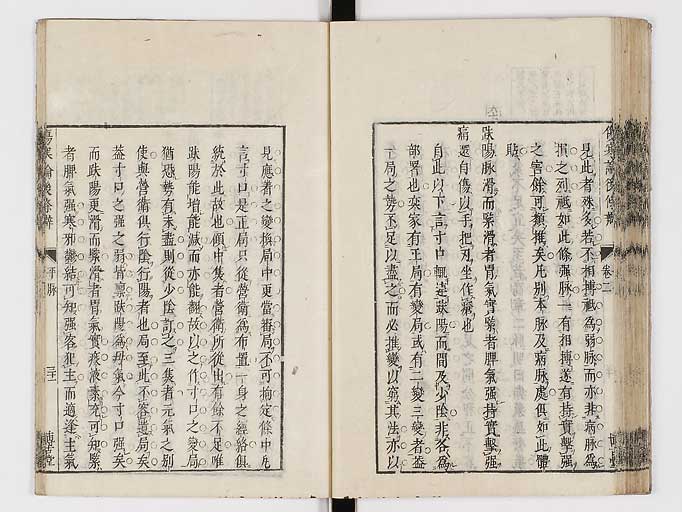 見此者殊多若不相搏祇爲弱脉而亦非病脉爲
損之列祇如此條强脉一有相搏遂有持實擊强
之害餘可類推矣凡别本脉及病脉處俱如此體
貼
趺陽脉滑而緊滑者胃氣實緊者脾氣强持實擊强
痛還自傷以手把刃坐作瘡也
自此以下言寸口輒連趺陽而間及少陰非各爲
部署也奕家有正局有變局或有二變三變者益
一局之勢不足以盡之而必推變以窮其法亦以
卷二
見應者之變換局中更當審局不可拘定條中凡
言寸口是正局只從營衛爲布置一身之經絡俱
統於此故也傾中隻者營衛所從出有餘不足唯
趺陽能增能減而亦能翻故以之作寸口之變局
猶恐勢有未盡則從少陰訂之三隻者元氣之别
使與營衛俱行陰行陽者也局至此不容遺局矣
益寸口之强之弱皆禀趺陽爲母氣今寸口强矣
而趺陽更滑而緊滑者胃氣實痰液素充可知緊
者脾氣强寒邪鬱結可知强客犯主而適逢主氣
傷寒論後條辨
平脉